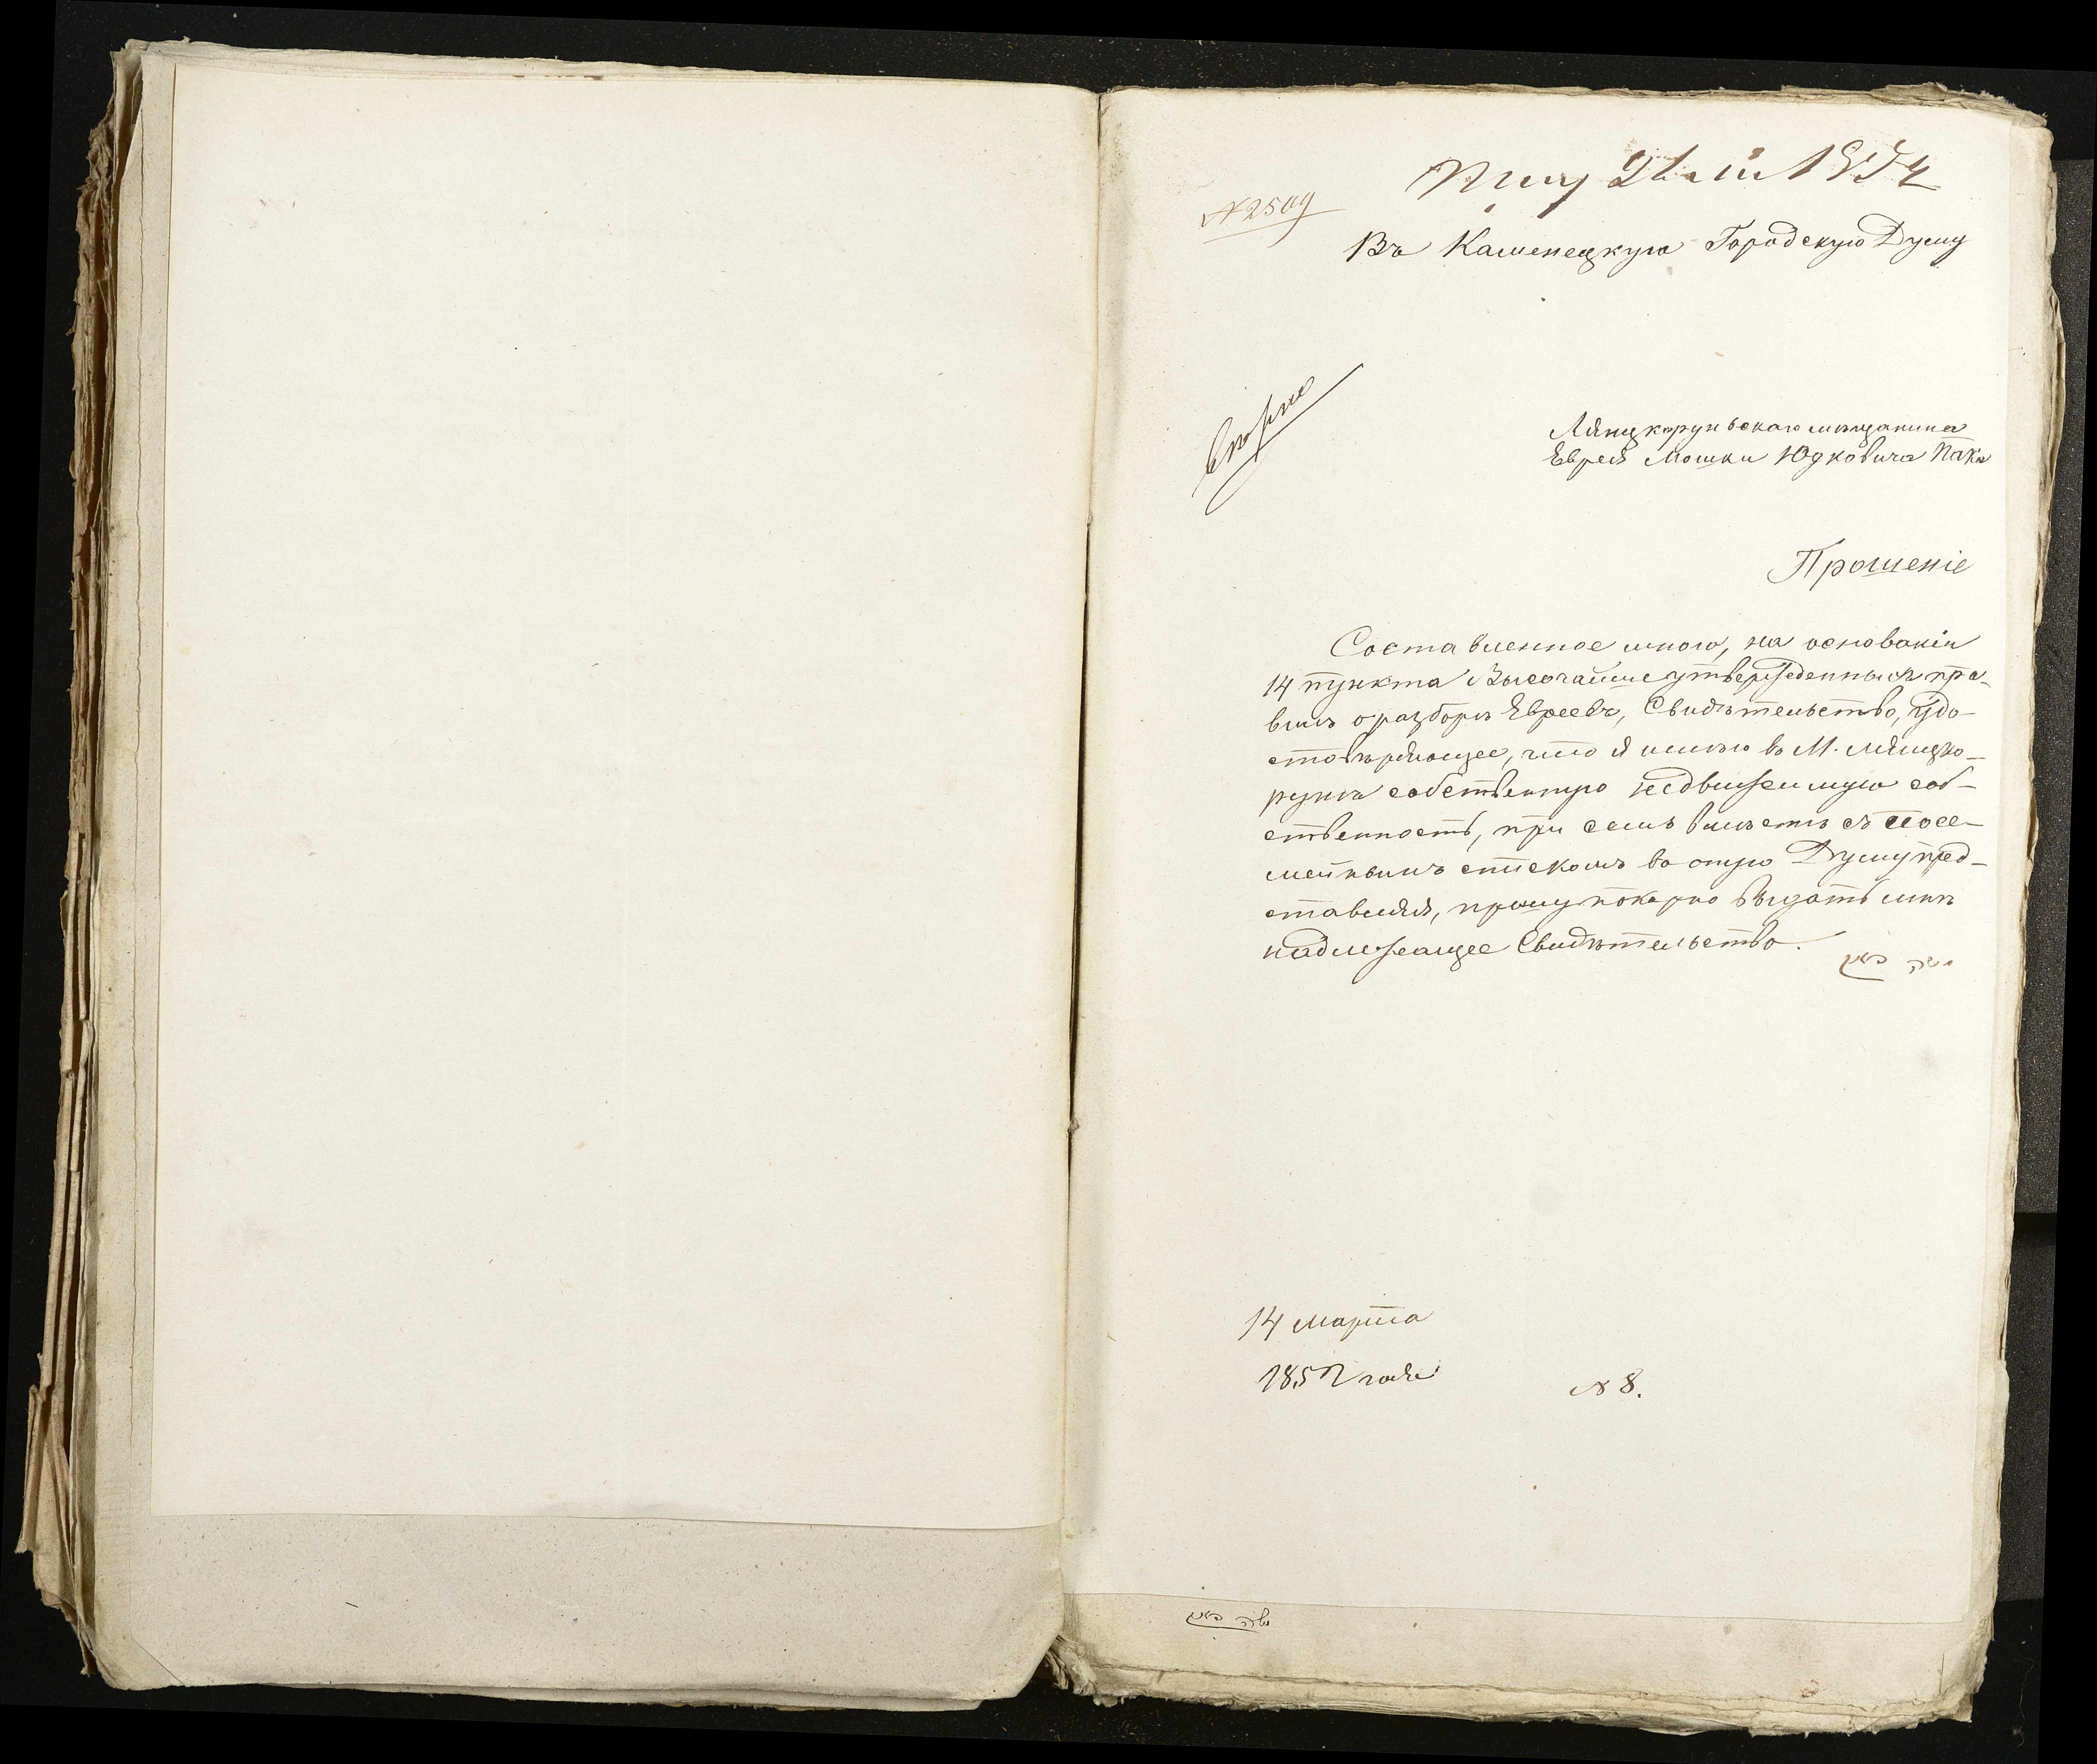 № 2509
Въ Каменецкую Городскую Думу
Ляпцкоруньскаго мѣщанина
Еврея Мошки Юдковича Пака
Прошеніе
Составленное мною, на основаніи
14 пункта Высочайше утвержденныхъ пра-
вилъ о разборѣ Евреевъ, Свидѣтельство, удо-
стовѣряющее, что я имѣю въ М. Ляпцко-
рунѣ собственную недвижимую соб-
ственность, при семъ вмѣстѣ съ посе-
мейнымъ спискомъ во оную Думу пред-
ставляя, прошу покорно выдать мнѣ
надлежащее Свидѣтельство.
משה פאק
14 марта
1852 года
№ 8.
משה פאק